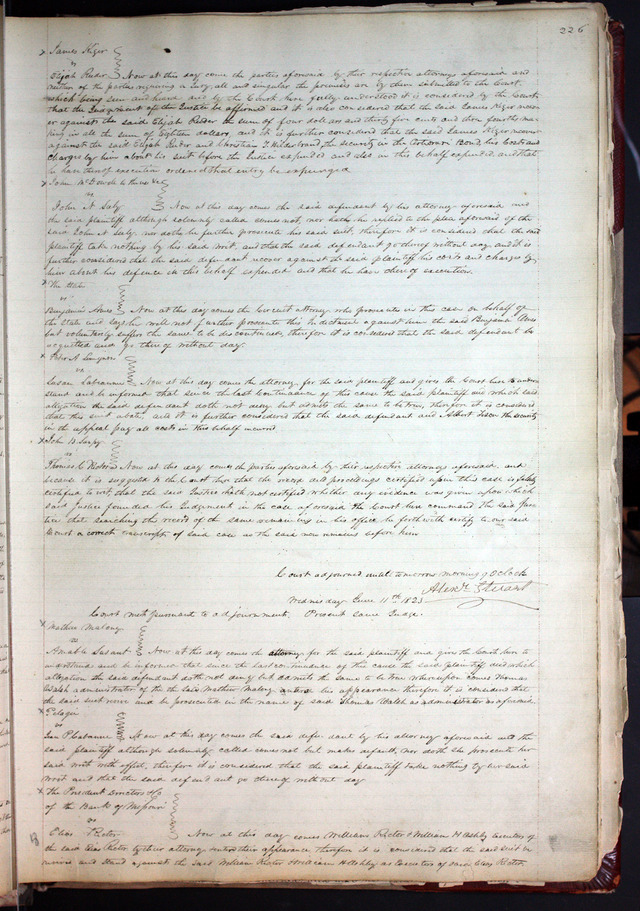 226
James Kyer
vs
Elijah Rector Now at this day come the parties aforesaid by their respective attorneys aforesaid and
neither of the parties requiring a Jury, all and singular the premises are by them submitted to the Court,
which being seen and heard and by the Court here fully understood it is considered by the Court
that the Judgement of the Justice be affirmed and it is also considered that the said James Kyer recov
er against the said Elijah Rector the sum of four dollars and thirty five cents and three fourths ma
king in all the sum of Eighteen dollars, and it is further considered that the said James Kyer recover
against the said Elijah Rector and Christian F. Hilderbrand the security in the Bond, his Costs and
Charges by him about his suit before the Justice expended and also in this behalf expended and that
he have thereof execution ordered that entry be expunged
John McDowell to the use &c
vs
John N Saly Now at this day comes the said defendant by his attorney aforesaid and
the said plaintiff although solemnly called comes not, nor doth he replied to the plea aforesaid of the
said John N Saly, nor doth he further prosecute his said suit, therefore it is considered that the said
plaintiff take nothing by his said writ, and that the said defendant go thereof without day and it is
further considered that the said defendant recover against the said plaintiff his costs and charges by
him about his defence in this behalf expended and that he have thereof execution.
The State
vs
Benjamin Ames Now at this day comes the Circuit attorney who prosecutes in this case on behalf of
the State and says he will not further prosecute this Indictment against him the said Benjamin Ames
but voluntarily suffers the same to be discontinued, therefore it is considered that the said defendant be
acquitted and go thereof without day
Peter A
vs
Susan Labeaume Now at this day comes the attorney for the said plaintiff and gives the Court here to under
stand and be informed that since the last Continuance of this cause the said plaintiff died which said
allegation the said defendant doth not deny but admits the same to be true, therefore it is considered
that this suit abate, and it is further considered that the said defendant and Albert Tison the security
in the appeal pay all costs in this behalf incurred
John B Sarpy
vs
Thomas C Rector Now at this day comes the parties aforesaid by their respective attorneys aforesaid, and
because it is suggested to the Court here that the record and proceedings certified upon this case is falsely
certified to wit, that the said Justice hath not certified whether any evidence was given upon which
said Justice founded his Judgement in the case aforesaid the Court here command the said Jus
tice that searching the record of the same remaining in his office he forthwith certify to our said
Court a correct transcript of said case as the said now remains before him
Court adjourned until tomorrow morning 9 OClock
Alexr Stuart
Wednesday June 11th 1823
Court met pursuant to adjournment. Present same Judge.
Mathew Malony
vs
Amable Susant Now at this day comes the attorney for the said plaintiff and give the Court here to
understand and be informed that since the last continuance of this cause the said plaintiff died which
allegation the said defendant doth not deny but admits the same to be true whereupon comes Thomas
Walsh administrator of the the said Mathew Malony entered his appearance therefore it is considered that
the said suit revive and be prosecuted in the name of said Thomas Walsh as administrator as aforesaid.
Pelagie
vs
Jean P Chatanne Now at this day comes the said defendant by his attorney aforesaid and the
said plaintiff although solemnly called comes not but makes default, nor doth she prosecute her
said writ with effect, therefore it is considered that the said plaintiff take nothing by her said
writ and that the said defendant go thereof without day
The President Directors &c
of the Bank of Missouri
vs
Elias Rector Now at this day comes William Rector & William H Ashby Executors of
the said Elias Rector by their attorney enters their appearance therefore it is considered that the said suit be
revive and stand against the said William Rector & William H Ashby as Executors of said Elias Rector